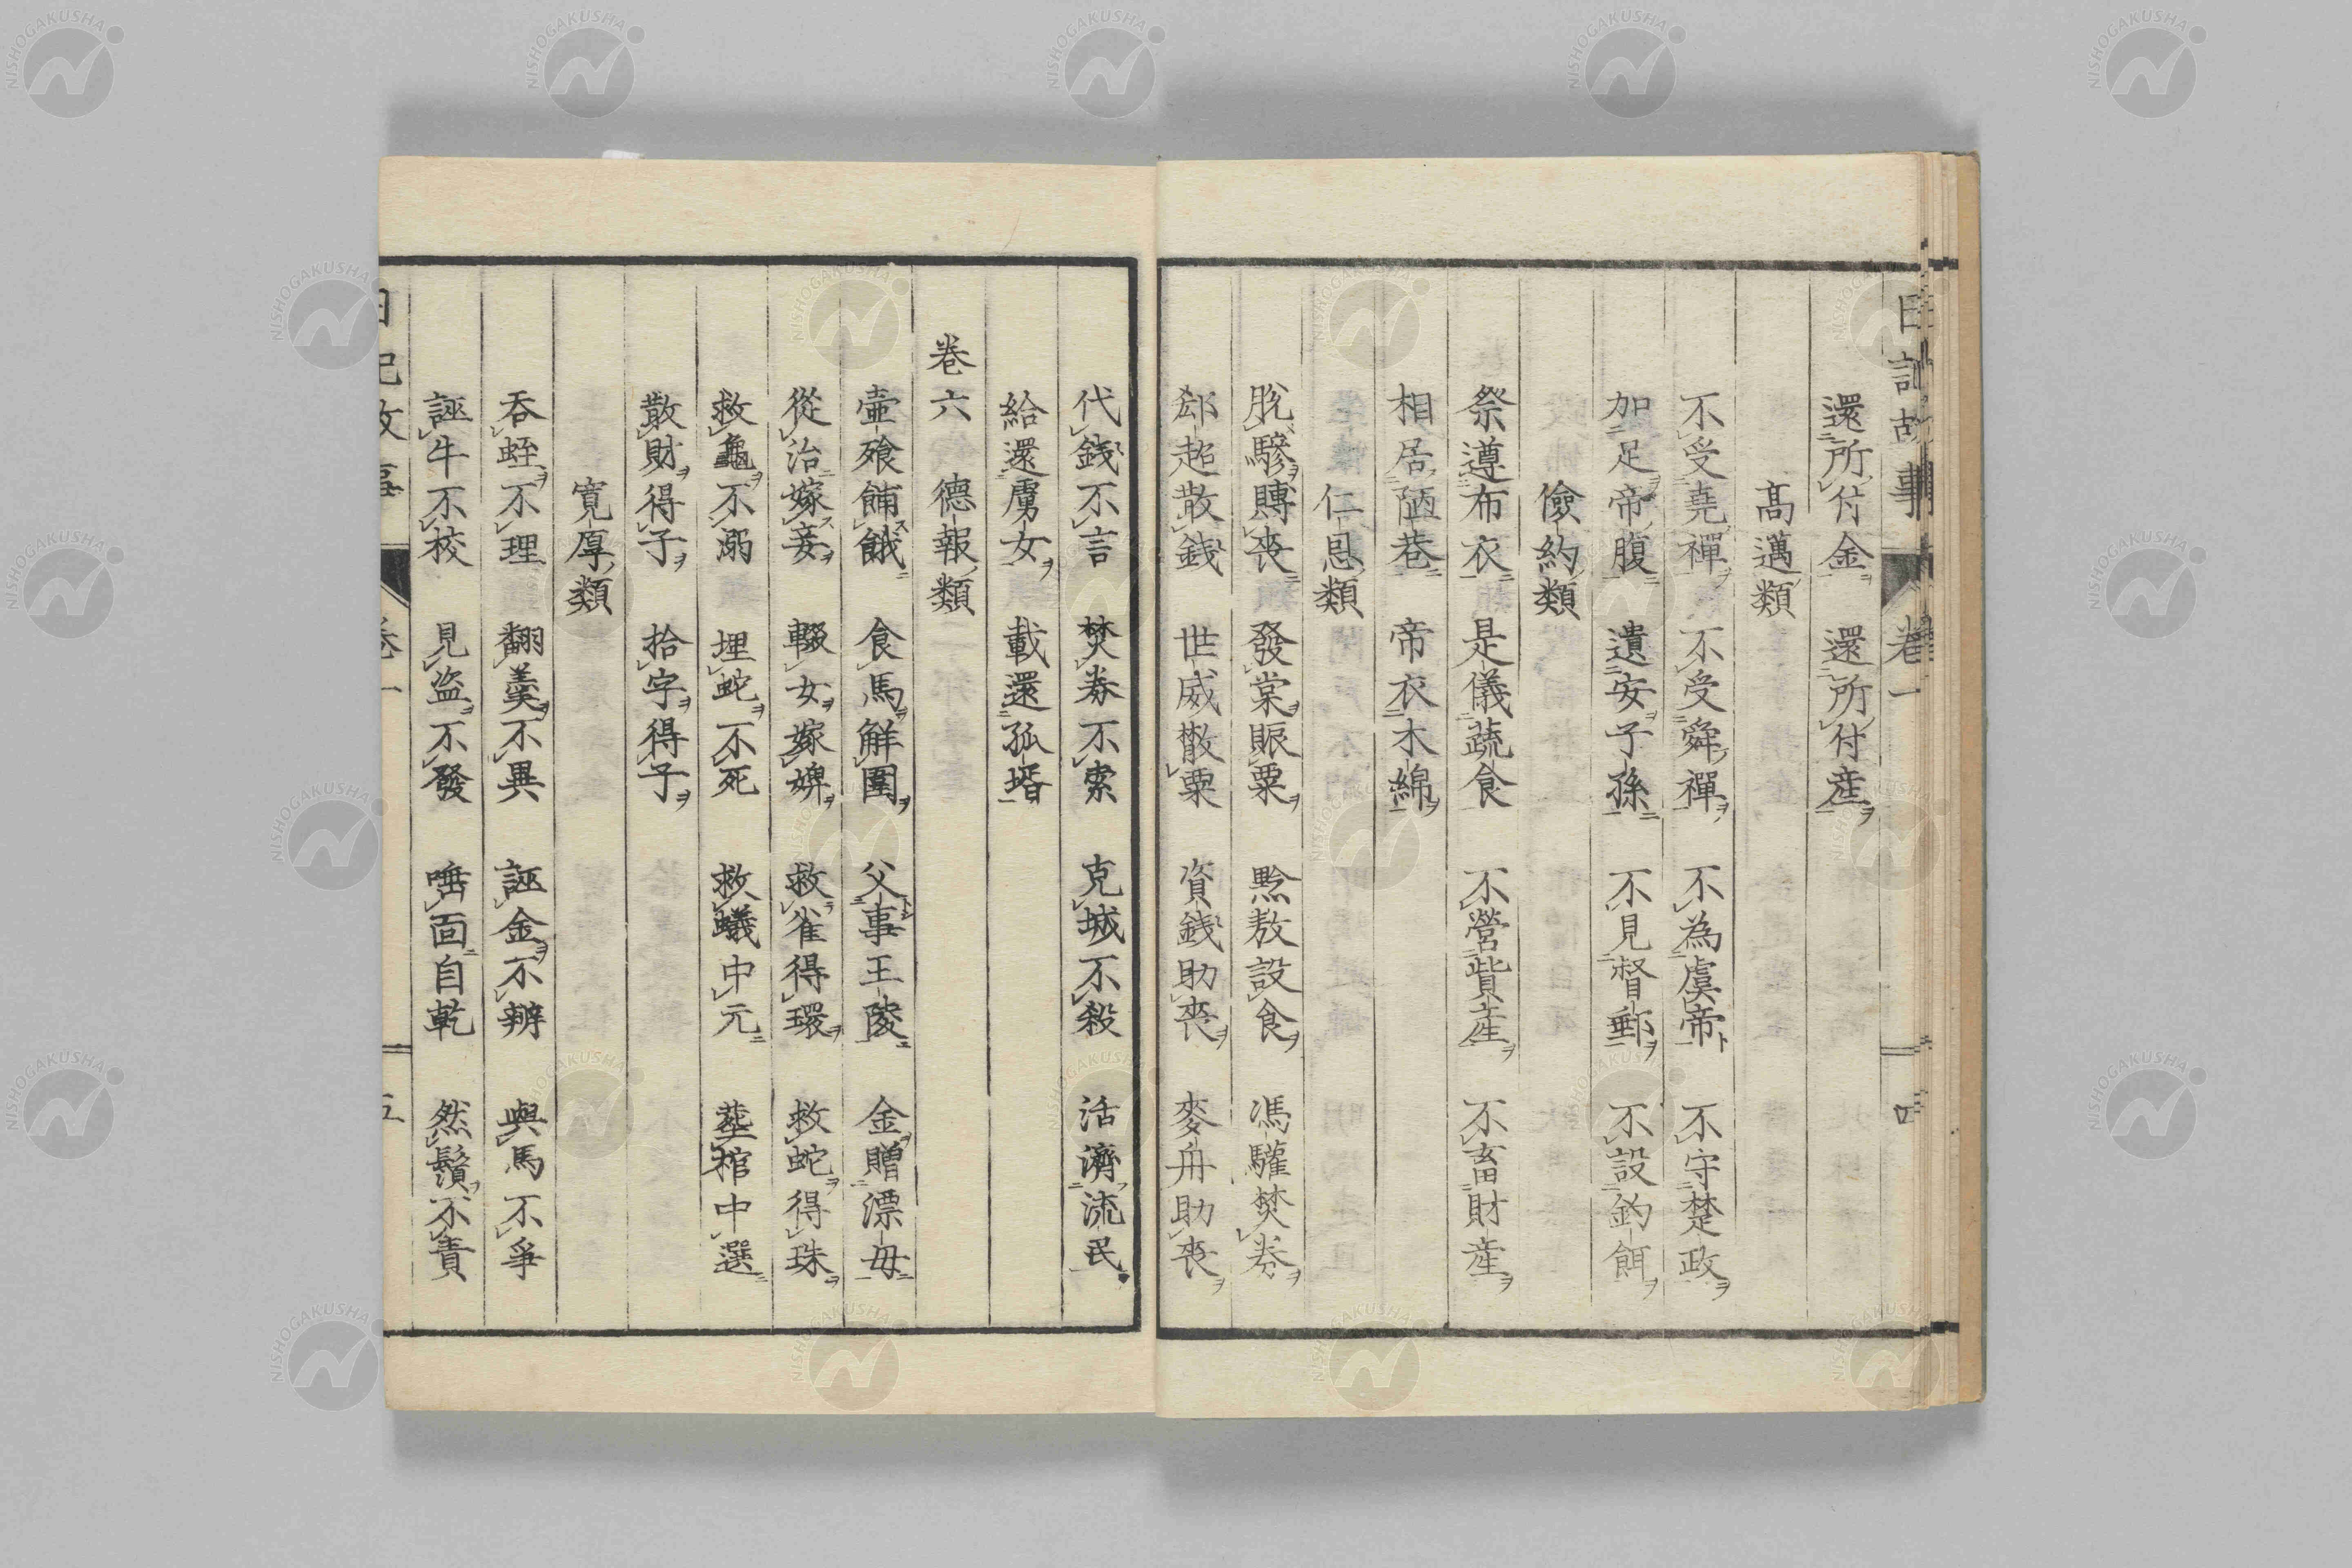 日記故事 卷一 四
還所付金 還所付産
高邁類
不受堯禪 不受舜禪 不為虞帝 不守楚政
加足帝腹 遺安子孫 不見督郵 不設釣餌
儉約類
祭遵布衣 是儀蔬食 不營貲産 不畜財産
相居陋巷 帝衣木綿
仁恩類
脫驂賻喪 發棠賑粟 黙敖設食 馮驩焚券
郄超散錢 世威散粟 資錢助喪 麥舟助喪
代錢不言 焚券不索 克城不殺 活濟流民
給還虜女 載還孤壻
卷六 德報類
壷飱餔餓 食馬觧圍 父事王陵 金贈漂母
從治嫁妾 輟女嫁婢 救雀得環 救蛇得珠
救龜不溺 埋蛇不死 救蟻中元 塟棺中選
散財得子 拾字得子
寛厚類
吞蛭不理 翻羹不異 誣金不辨 與馬不爭
誣牛不校 見盗不發 唾面自乾 然鬚不責
日記故事 卷一 五
NISHOGAKUSHA